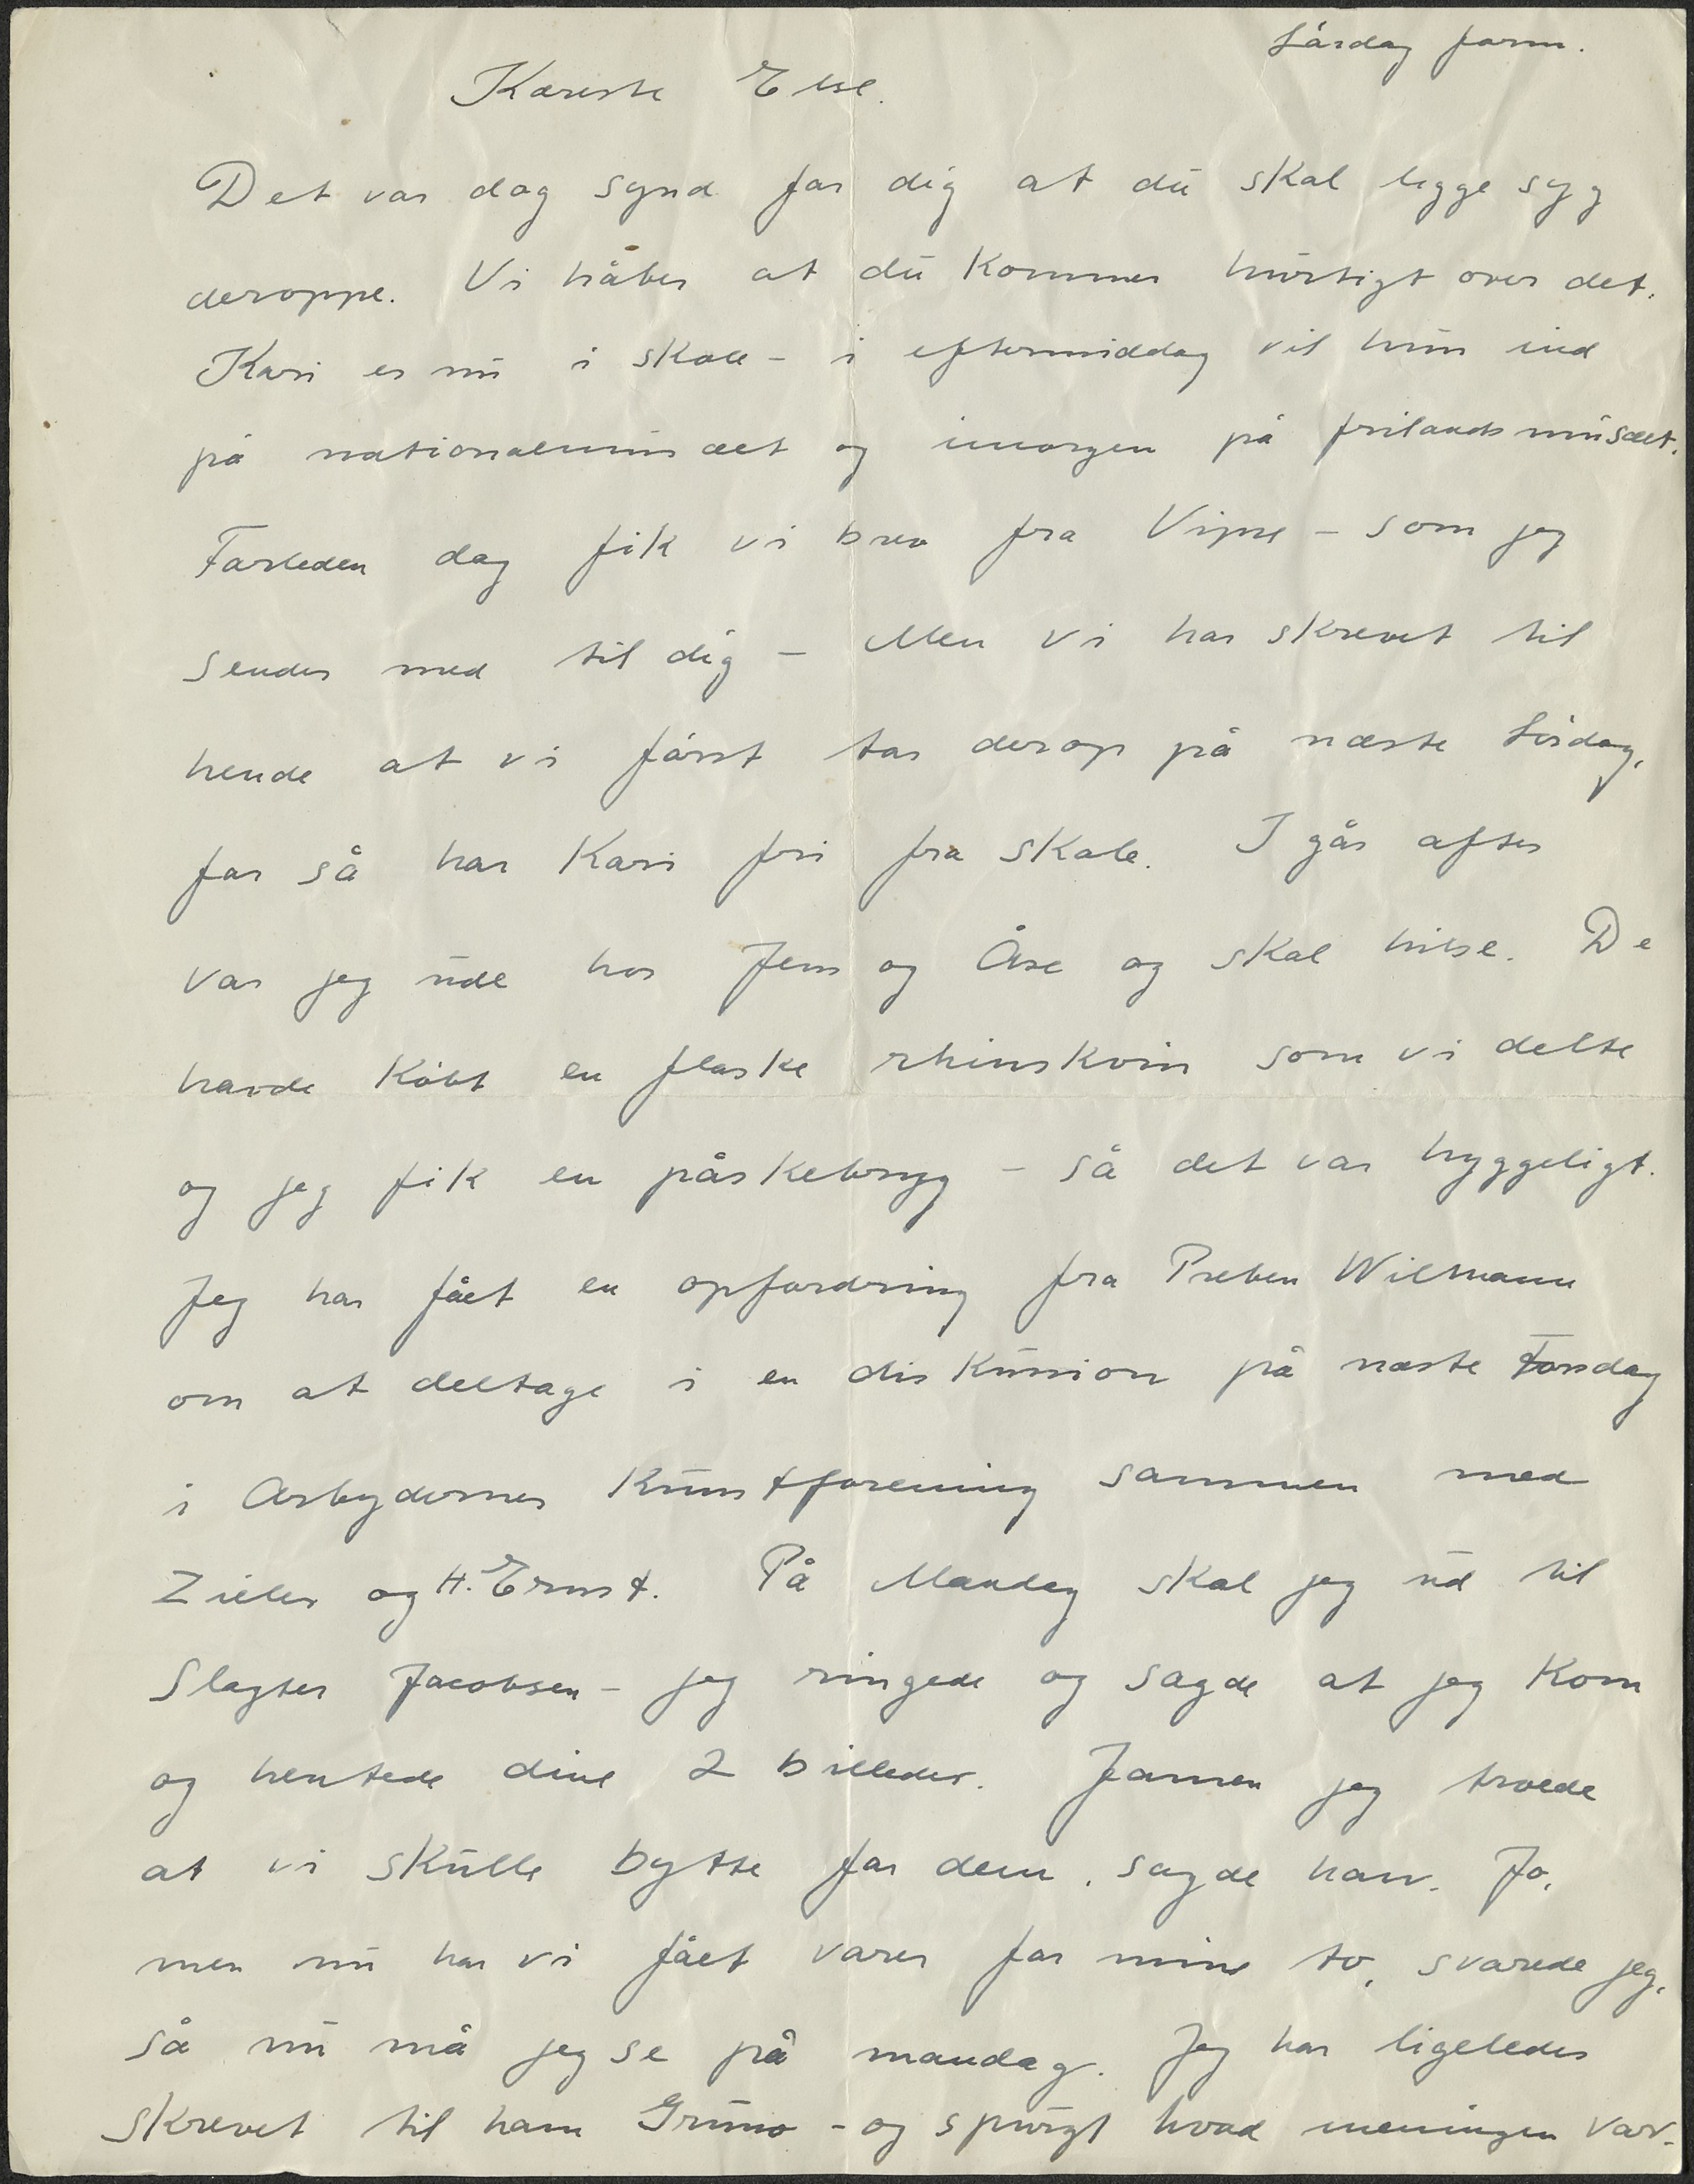 Lördag form.
Kæreste Else.
Det var dog synd for dig at du skal ligge syg
deroppe. Vi håber at du kommer hurtigt over det.
Kari er nu i skole – i eftermiddag vil hun ind
på nationalmusæet og imorgen på frilandsmusæet.
Forleden dag fik vi brev fra Vipse – som jeg
sender med til dig – Men vi har skrevet til
hende at vi først tar derop på næste Lördag,
for så har Kari fri fra skole. I går aftes
var jeg ude hos Jens og Åse og skal hilse. De
havde købt en flaske rhinskvin som vi delte
og jeg fik en påskebryg – så det var hyggeligt.
Jeg har fået en opfordring fra Preben Wilmann
om at deltage i en diskussion på næste Torsdag
i Arbejdernes Kunstforening sammen med
Zieler og H. Ernst. På Mandag skal jeg ud til
Slagter Jacobsen – jeg ringede og sagde at jeg kom
og hentede dine 2 billeder. Jamen jeg troede
at vi skulle bytte for dem, sagde han. Jo,
men nu har vi fået varer for mine to, svarede jeg,
så nu må jeg se på mandag. Jeg har ligeledes
skrevet til ham – og spurgt hvad meningen var.